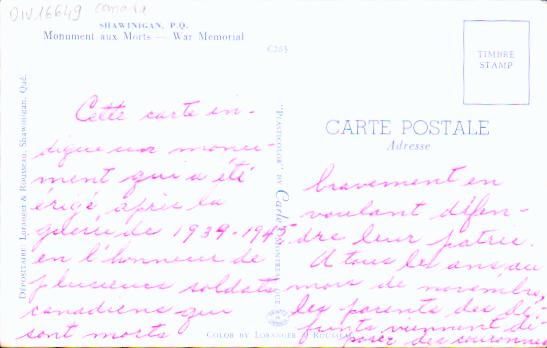 DIV16649 canada
SHAWINIGAN, P.Q.
Monument aux Morts — War Memorial
C265
TIMBRE
STAMP
CARTE POSTALE
Adresse
Dépositaire: Loranger & Rousseau, Shawinigan, Qué.
"PLASTICOLOR" BY
Cette carte in-
dique un monu-
ment qui a été
érigé après la
guerre de 1939-1945
en l'honneur de
plusieurs soldats
canadiens qui
sont morts
bravement en
voulant défen-
dre leur patrie.
A tous les ans, au
mois de novembre,
les parents des dé-
funts viennent dé-
poser des couronnes
COLOR BY LORANGER & ROUSSEAU